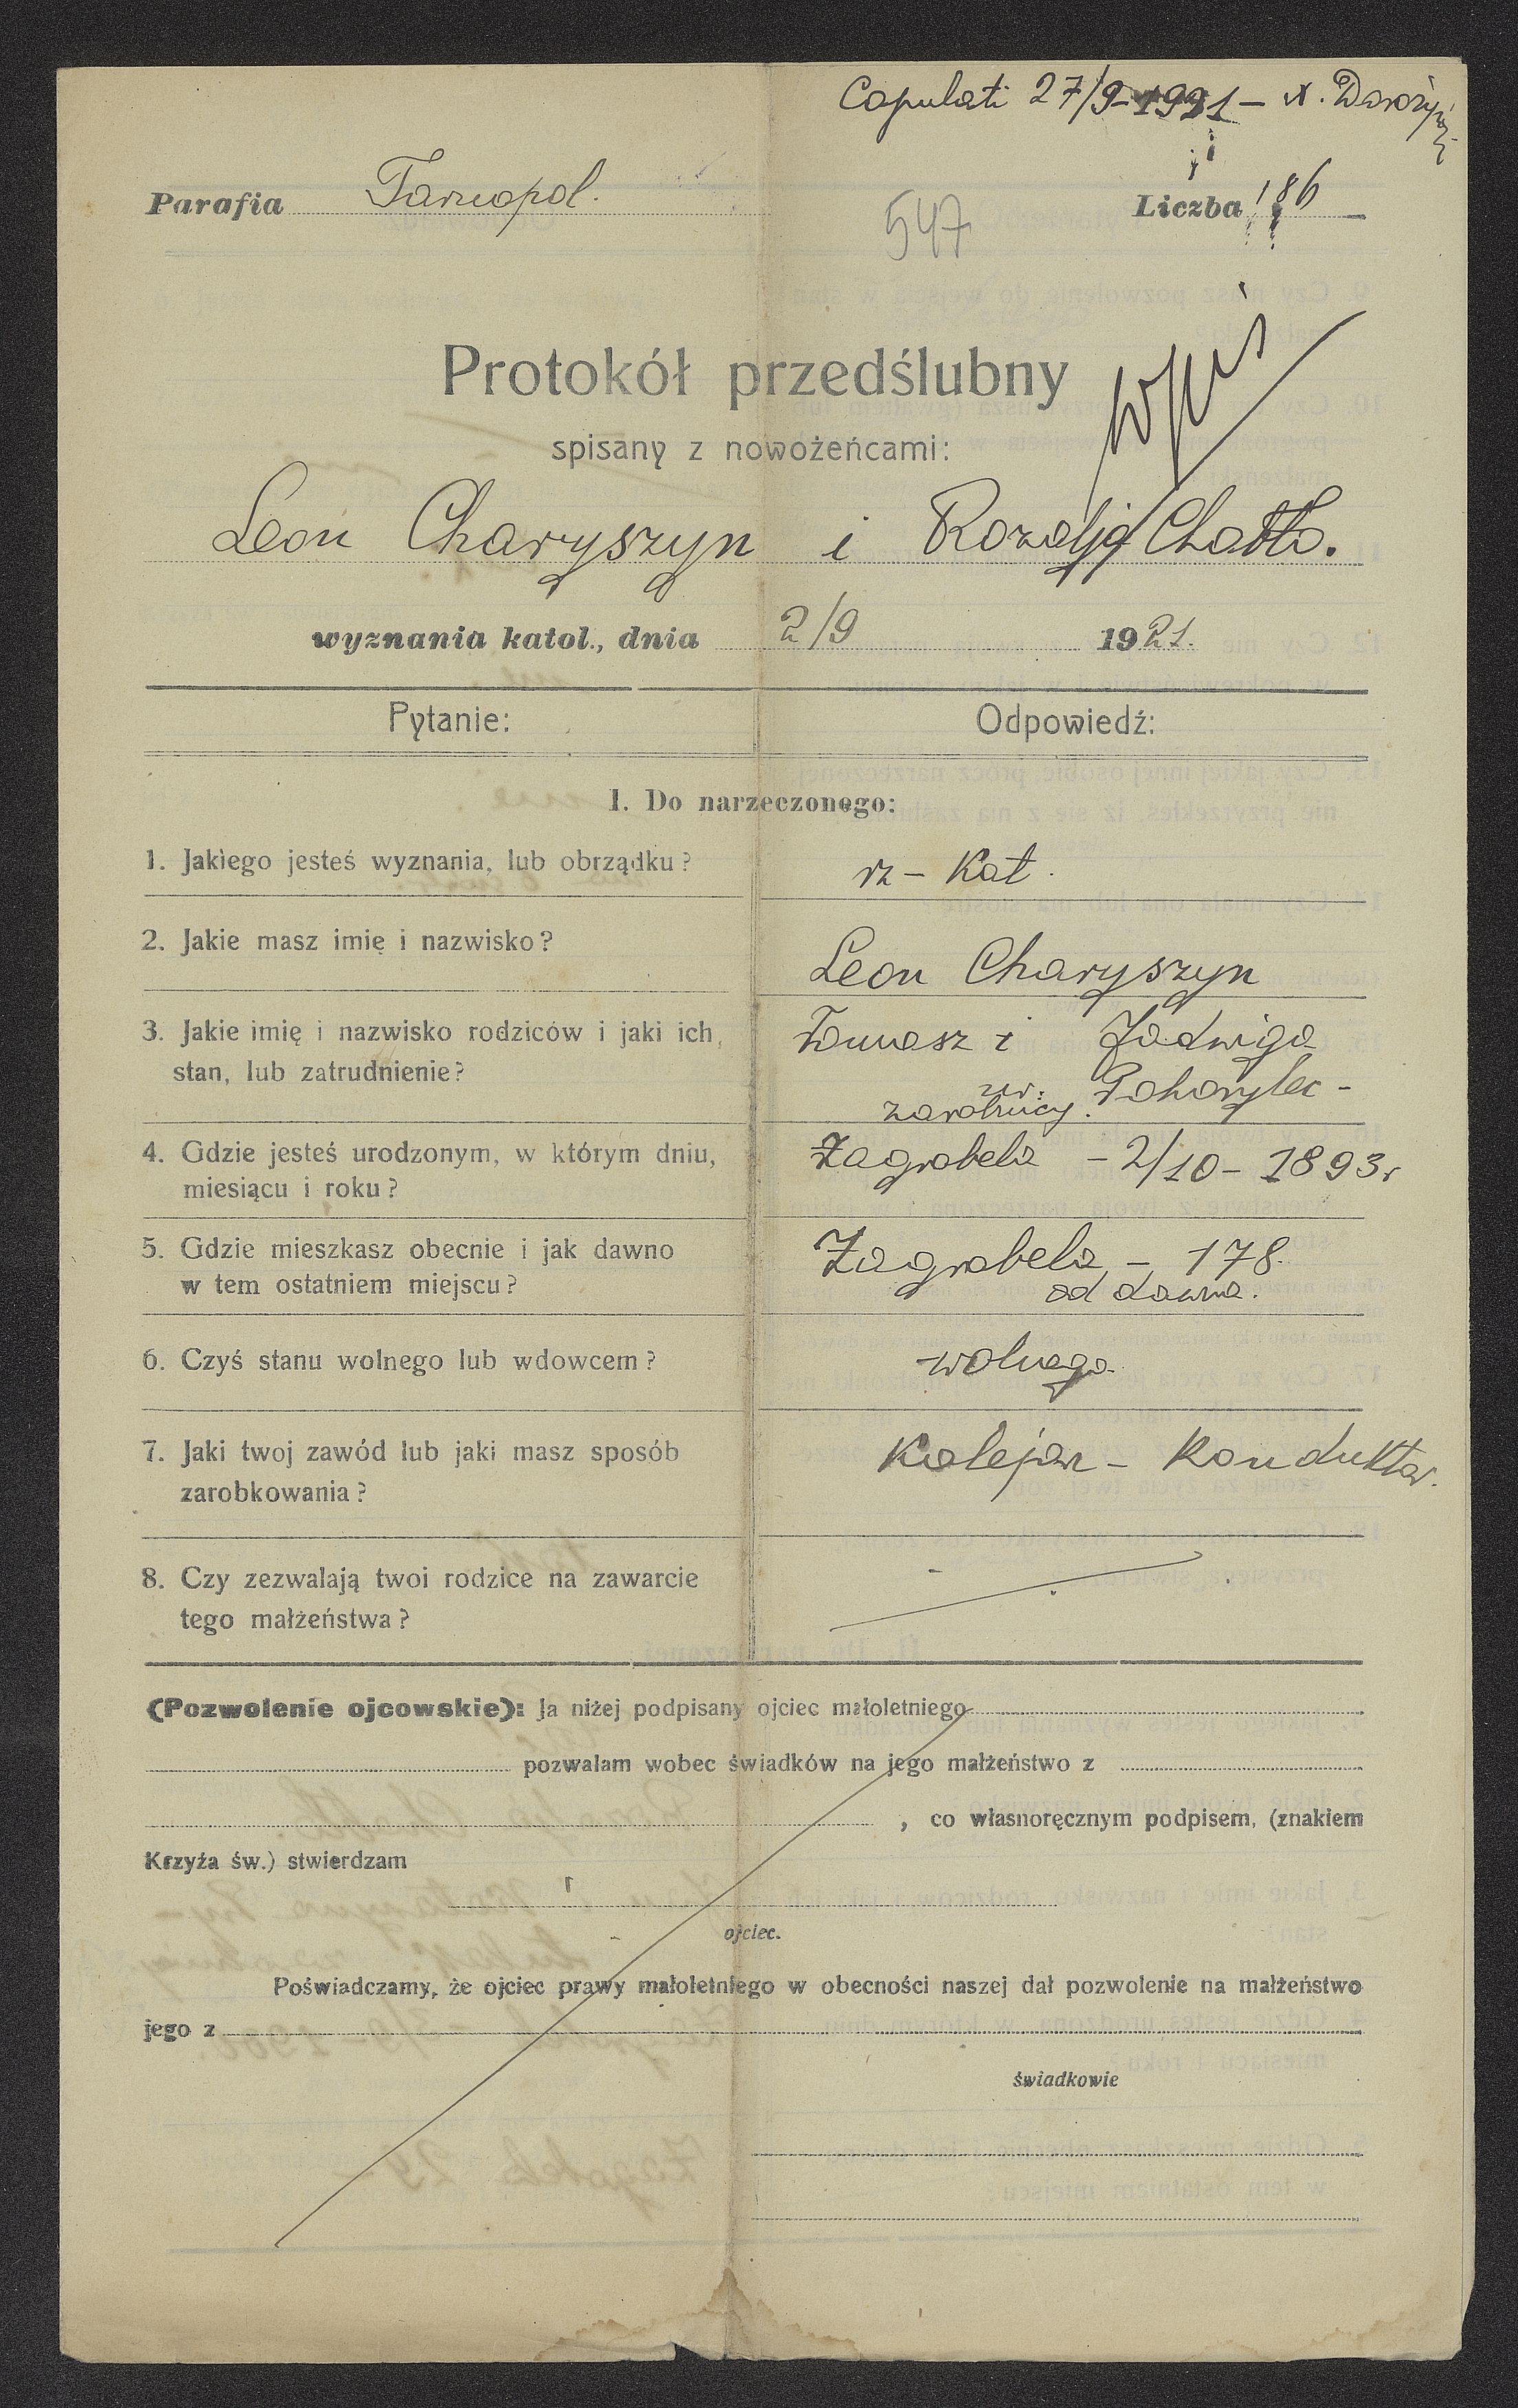 Copulati 27/9-1921 - X.
Parafia Tarnopol.
Liczba 186
547
Protokół przedślubny
spisany z nowożeńcami:
Leon Charyszyn i Rozalja Chabło.
wyznania katol., dnia 2/9 1921.
Pytanie: Odpowiedź:
I. Do narzeczonego:
1. Jakiego jesteś wyznania, lub obrządku? rz - Kat.
2. Jakie masz imię i nazwisko?
Leon Charyszyn
3. Jakie imię i nazwisko rodziców i jaki ich, Tomasz i Jadwiga
stan, lub zatrudnienie? Pohorylec -
zarobnicy.
4. Gdzie jesteś urodzonym, w którym dniu, Zagrobela - 2/10 - 1893 r
miesiącu i roku?
5. Gdzie mieszkasz obecnie i jak dawno Zagrobela - 178.
w tem ostatniem miejscu? od dawna.
6. Czyś stanu wolnego lub wdowcem? wolnego
7. Jaki twoj zawód lub jaki masz sposób Kolejarz - Konduktor.
zarobkowania?
8. Czy zezwalają twoi rodzice na zawarcie
tego małżeństwa?
(Pozwolenie ojcowskie): Ja niżej podpisany ojciec małoletniego
pozwalam wobec świadków na jego małżeństwo z
, co własnoręcznym podpisem, (znakiem
Krzyża św.) stwierdzam
ojciec.
Poświadczamy, że ojciec prawy małoletniego w obecności naszej dał pozwolenie na małżeństwo
jego z
świadkowie